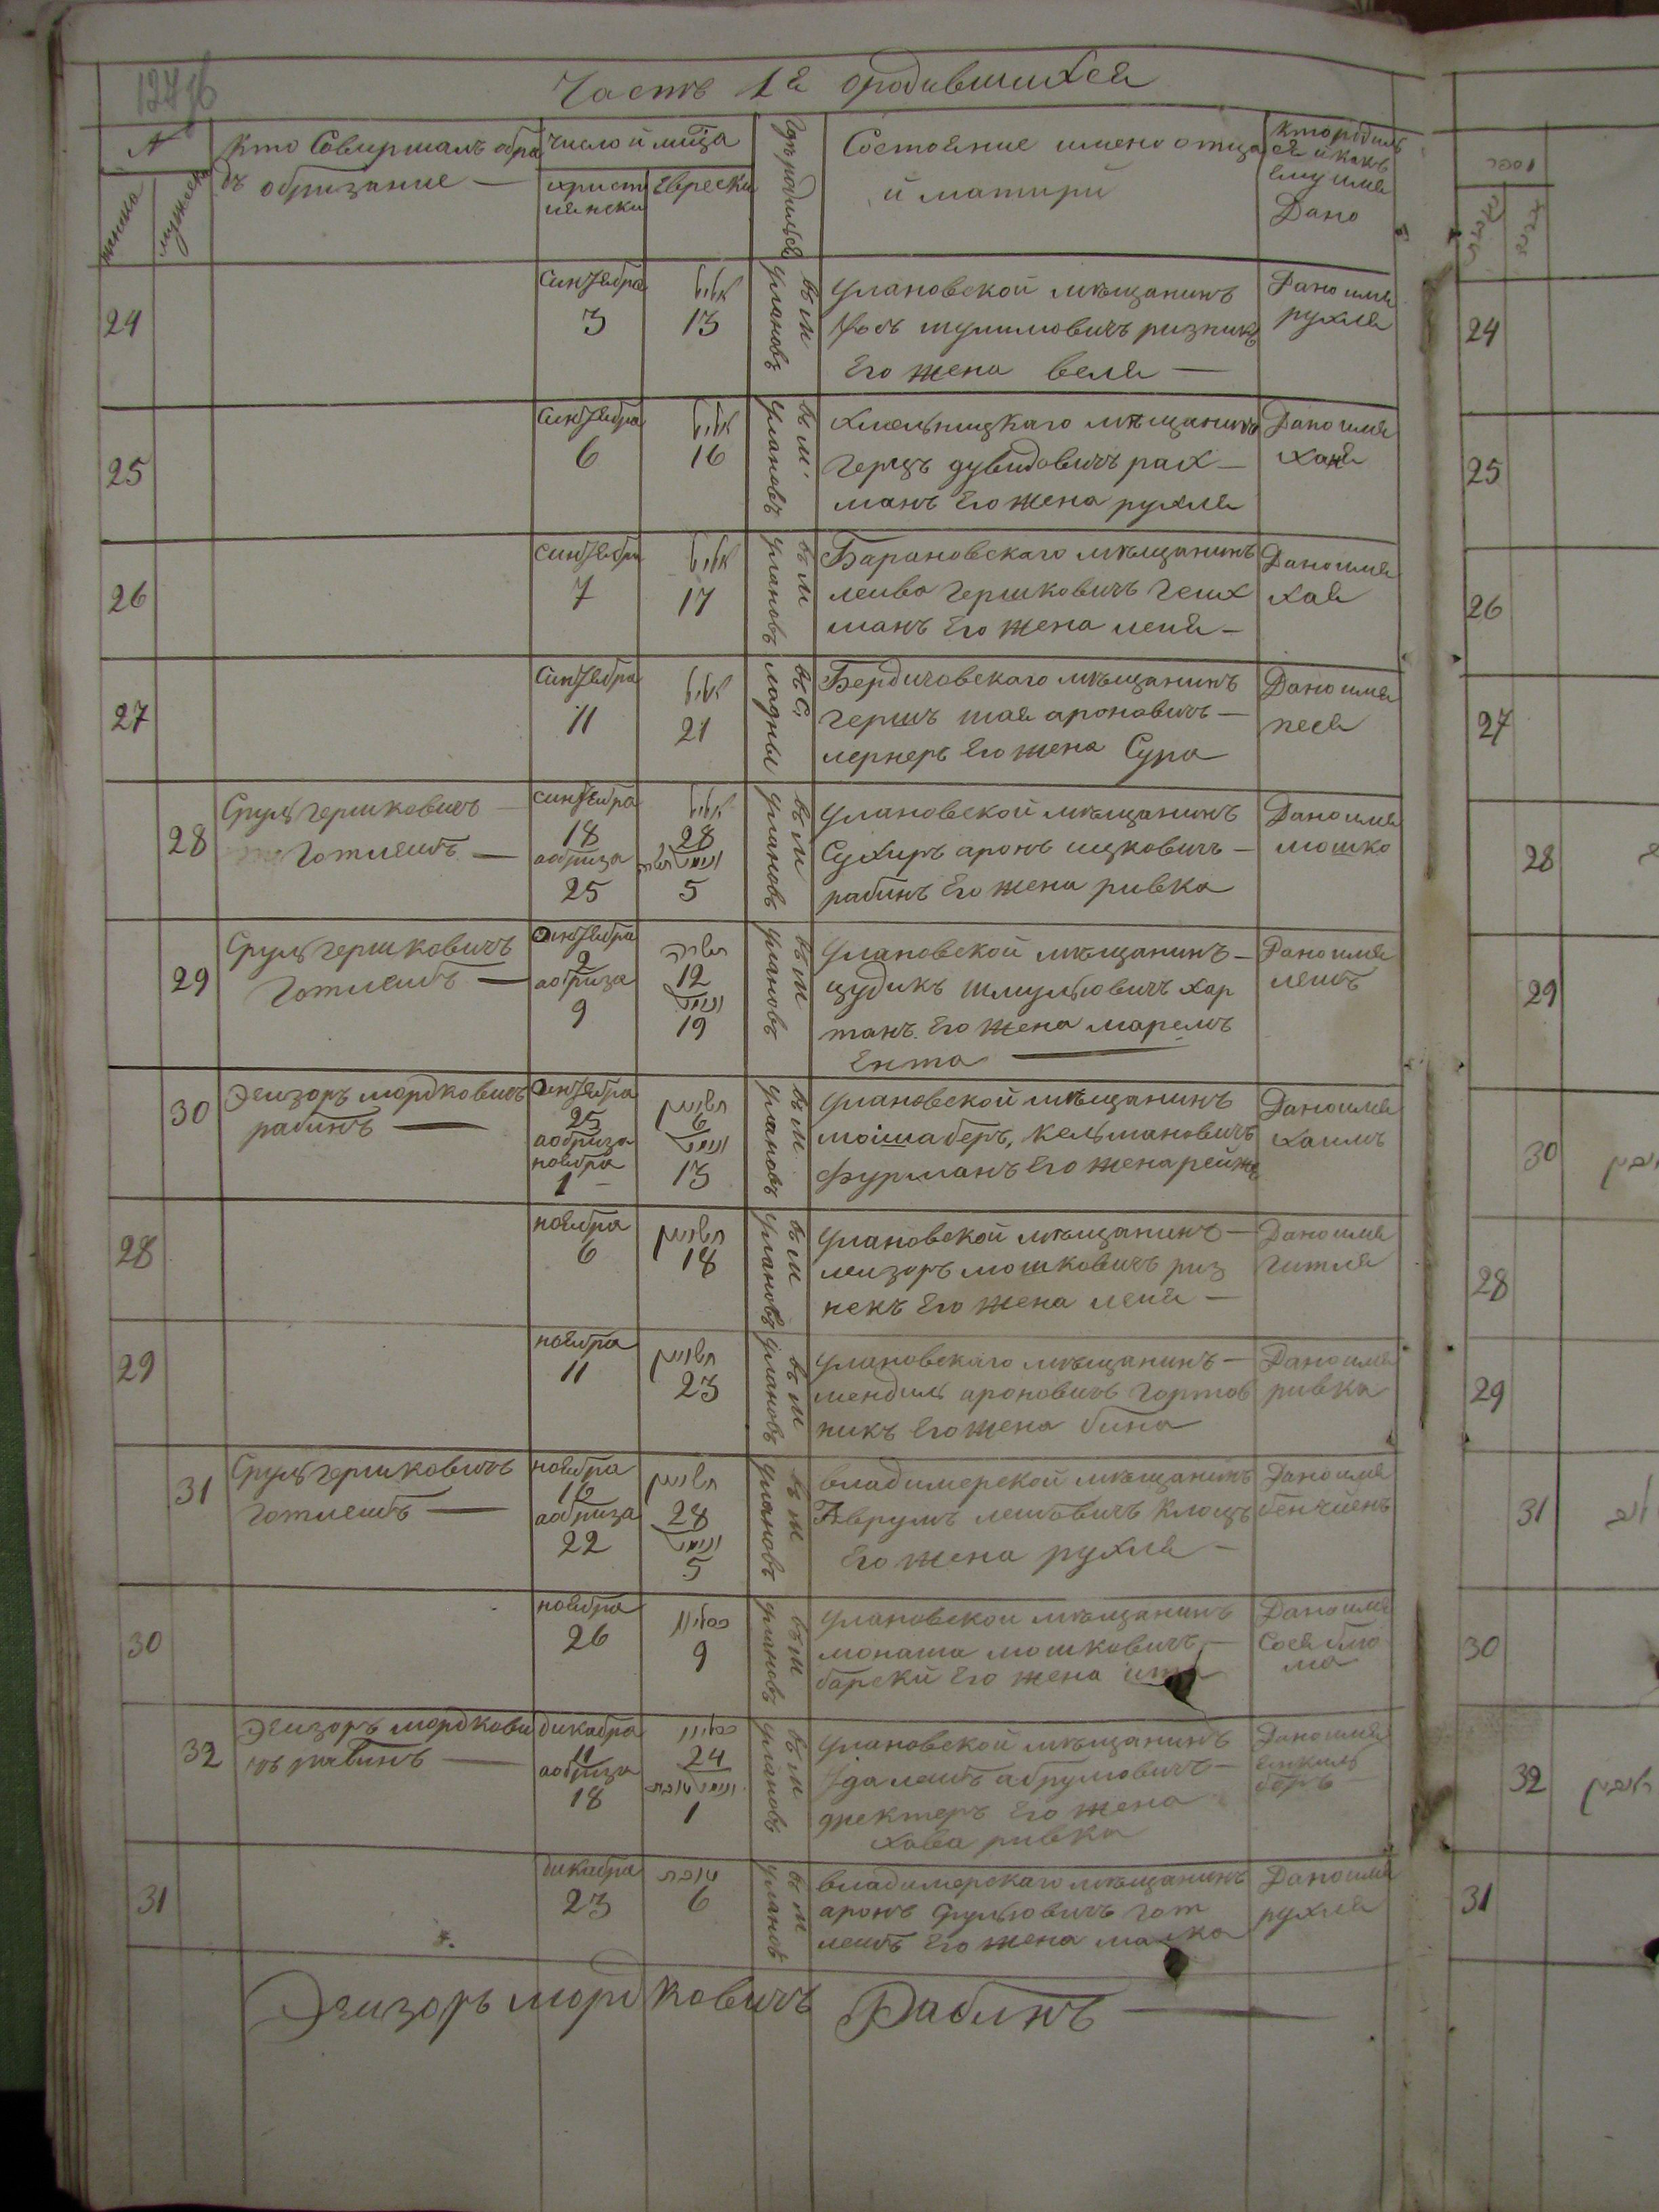 Часть 1я ородившихся
№
женска
мужеска
Кто Совиршалъ обра
дъ обризание —
число и мѣца
христ
иянски
Еврески
Гдѣ родился
Состояние имено отца
и матири
кто родилъ
ся и какъ
ему имя
Дано
24
синтября
3
אלול
13
въ м
Улановъ
Улановской мѣщанинъ
шулимовичъ ризникъ
Его жена веля —
Дано имя
рухля
25
синтября
6
אלול
16
въ м.
Улановъ
Хмельницкаго мѣщанинъ
Герцъ дувидовичъ рах—
манъ Его жена рухля
Дано имя
хая
26
синтября
7
אלול
17
въ м
Улановъ
Барановскаго мѣщанинъ
лейво Гершковичъ Гейх
манъ Его жена леня —
Дано имя
хая
27
синтября
11
אלול
21
въ С,
ладны
Бердичовскаго мѣщанинъ
Гершъ шая ароновичъ —
лернеръ Его жена Сура
Дано имя
песя
28
Сруль гершковичъ —
Готлейбъ —
синтября
18
аобриза
25
אלול
28
נימול תשרי
5
въ м
Улановъ
Улановской мѣщанинъ
Сухиръ аронъ ицковичъ —
рабинъ Его жена ривка
Дано имя
мошко
29
Сруль гершковичъ
Готлейбъ —
октября
2
аобриза
9
תשרי
12
נימול
19
въ м
Улановъ
Улановской мѣщанинъ —
цудикъ шмульовичъ хар
танъ. Его жена маремъ
Ента —
Дано имя
лейбъ
30
Элизоръ мордковичъ
рабинъ —
октября
25
аобриза
ноября
1 —
חשון
6
נימול
13
въ м
Улановъ
Улановской мѣщанинъ
моишаберъ, кельмановичъ
фурманъ Его жена рейжа
Дано имя
хаимъ
28
ноября
6
חשון
18
въ м
Улановъ
Улановской мѣщанинъ —
лейзоръ мошковичъ риз
некъ Его жена леня —
Дано имя
Гитля
29
ноября
11
חשון
23
въ м
Улановъ
Улановскаго мѣщанинъ —
мендиль ароновичъ Гортов
никъ Его жена бина
Дано имя
ривка
31
Сруль гершковичъ
Готлейбъ —
ноября
16
аобриза
22
חשון
28
נימול
5
въ м
Улановъ
владимерской мѣщанинъ
Аврумъ лейбовичъ Клоцъ
Его жена рухля —
Дано имя
бенчиенъ
30
ноября
26
כסליו
9
въ м
Улановъ
Улановской мѣщанинъ
монаша мошковичъ —
барски Его жена
Дано имя
Сося блю
ма
32
Элизоръ мордкови
чъ рабинъ —
дикабря
11
аобриза
18
כסליו
24
נימול טבת
1
въ м
Улановъ
Улановской мѣщанинъ
Удалейбъ абрумовичъ —
дректеръ Его жена
хава ривка
Дано имя
Еикиль
беръ
31
дикабря
23
טבת
6
въ м
Улановъ
владимерскаго мѣщанинъ
аронъ срульовичъ Гот
лейбъ Его жена малка
Дано имя
рухля
Элизоръ мордковичъ Рабинъ —
24
25
26
27
28
29
30
28
29
31
30
32
31